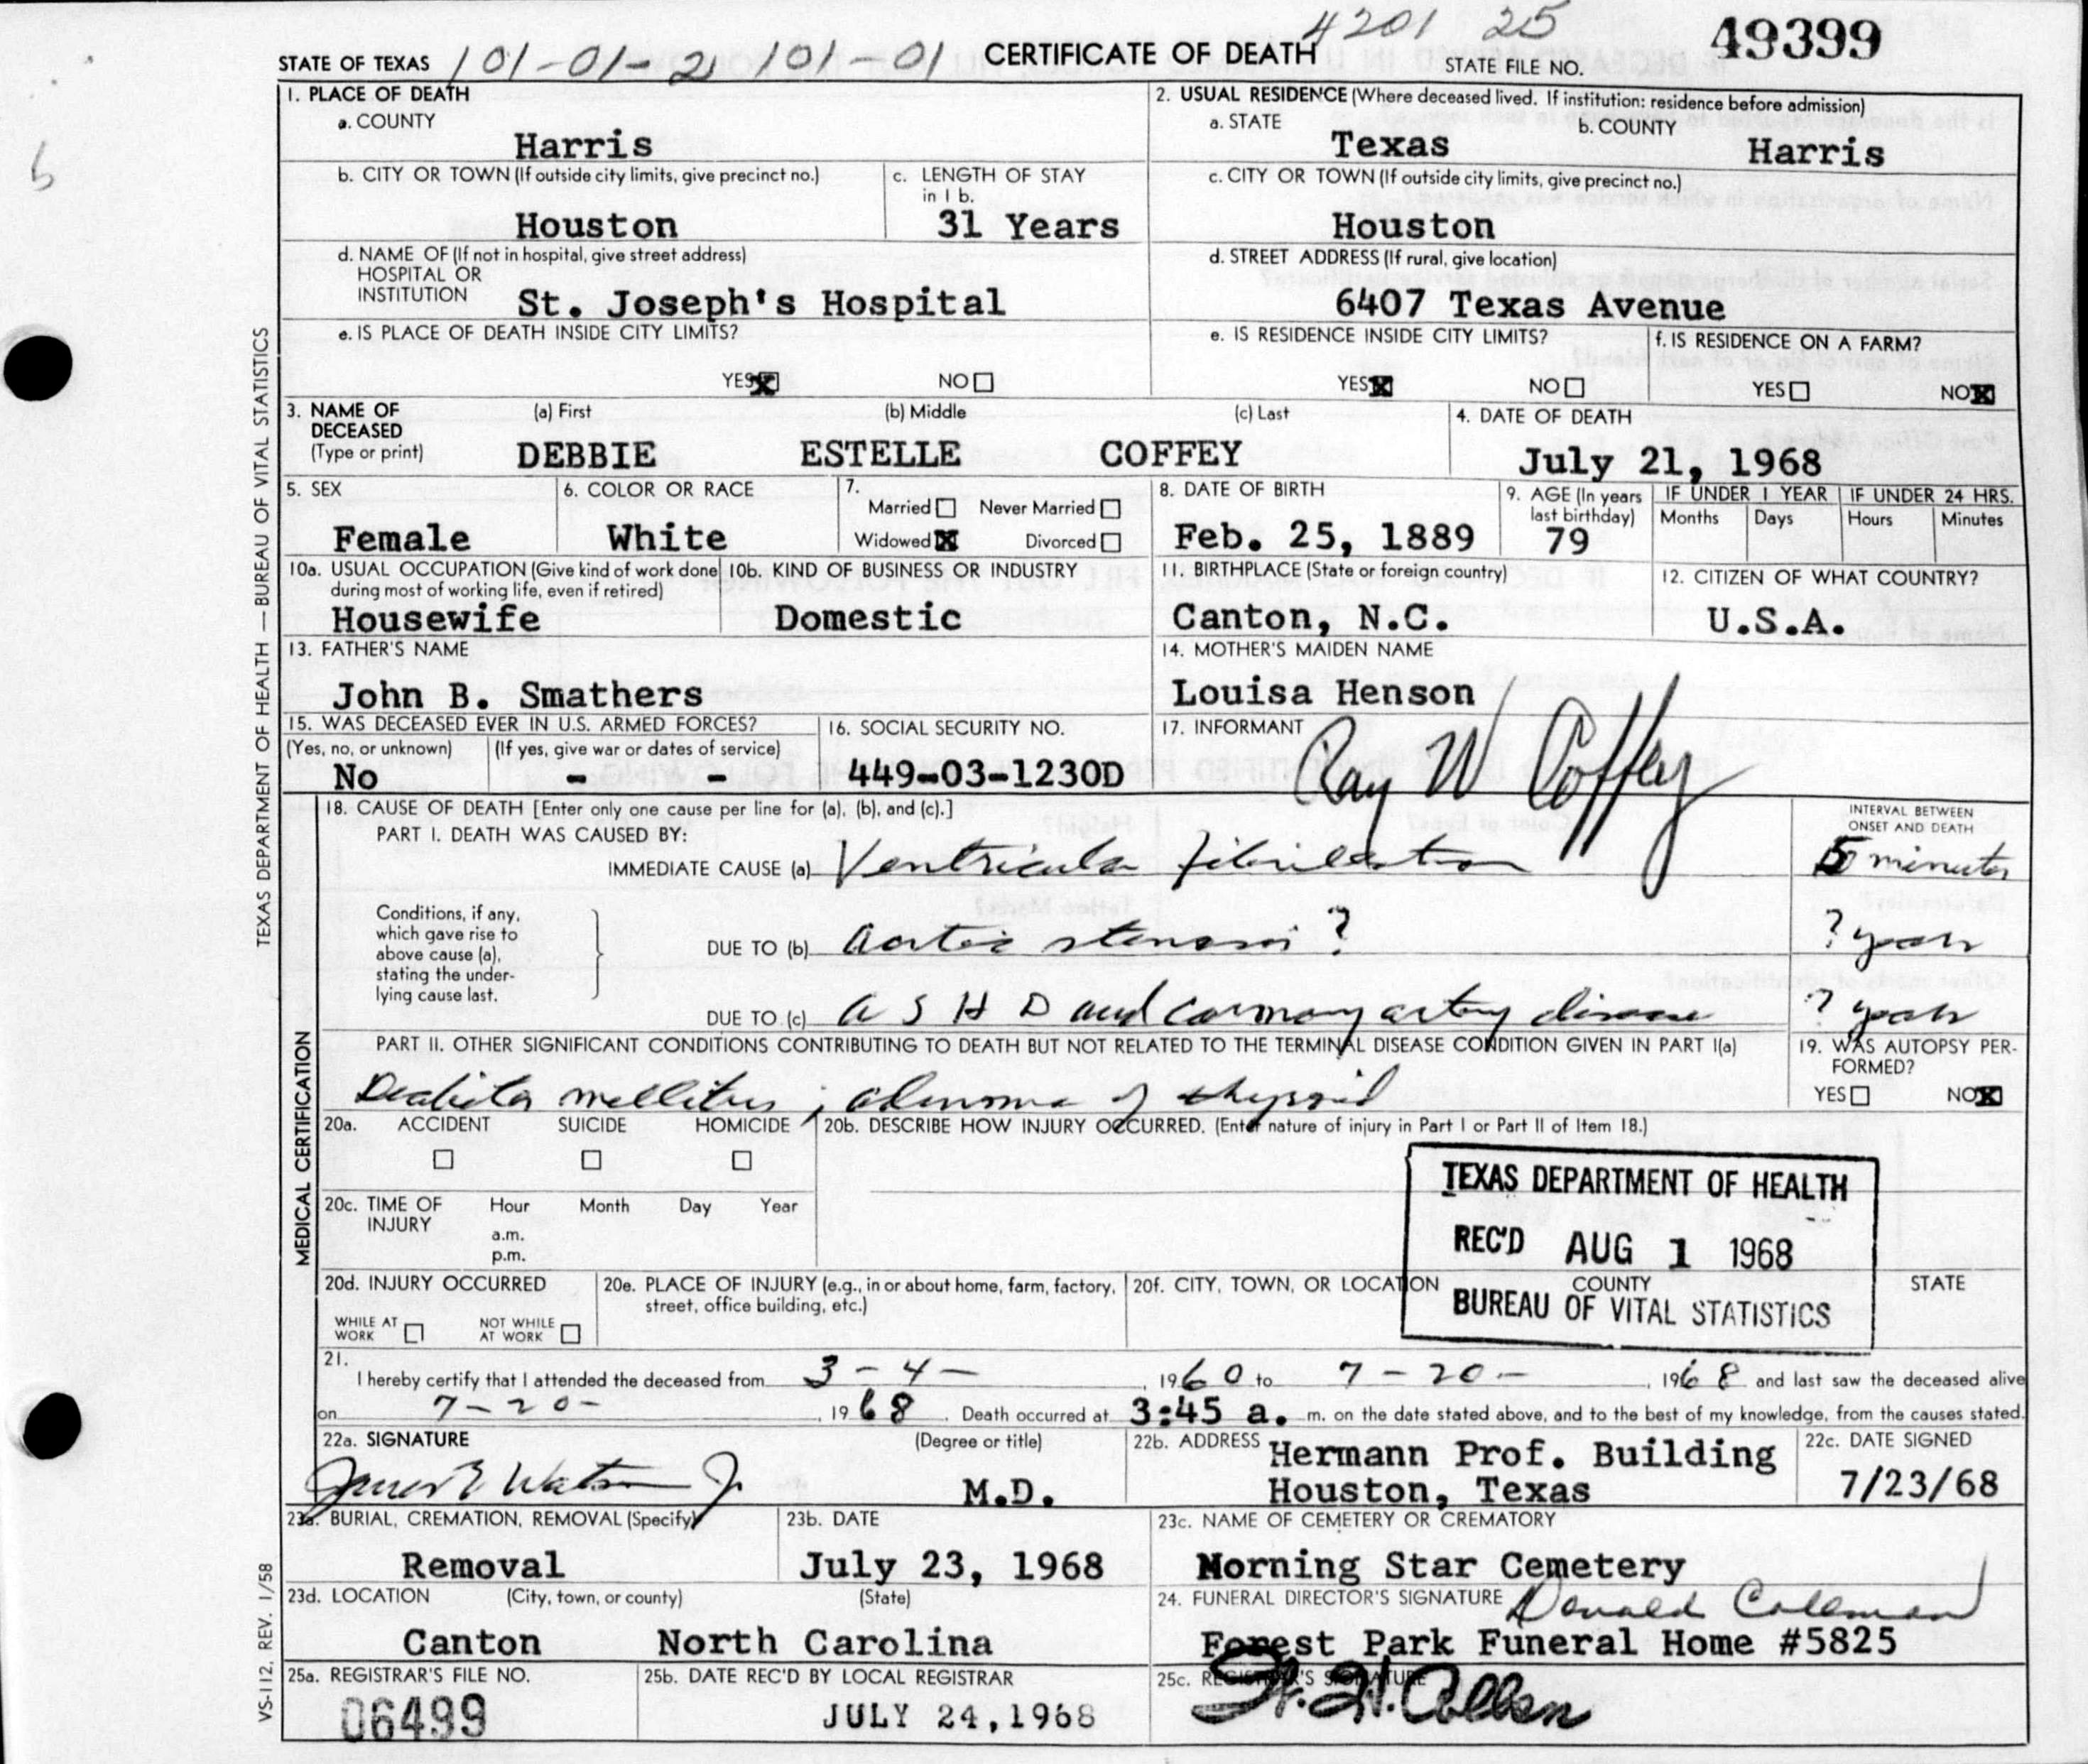 4201 25
STATE OF TEXAS 101-01-2 101-01 CERTIFICATE OF DEATH STATE FILE NO. 49399
1. PLACE OF DEATH
a. COUNTY
Harris
2. USUAL RESIDENCE (Where deceased lived. If institution: residence before admission)
a. STATE b. COUNTY
Texas Harris
b. CITY OR TOWN (If outside city limits, give precinct no.)
Houston
c. LENGTH OF STAY
in 1 b.
31 Years
c. CITY OR TOWN (If outside city limits, give precinct no.)
Houston
d. NAME OF (If not in hospital, give street address)
HOSPITAL OR
INSTITUTION St. Joseph's Hospital
d. STREET ADDRESS (If rural, give location)
6407 Texas Avenue
e. IS PLACE OF DEATH INSIDE CITY LIMITS?
YES X NO
e. IS RESIDENCE INSIDE CITY LIMITS?
YES X NO
f. IS RESIDENCE ON A FARM?
YES NO X
3. NAME OF
DECEASED
(Type or print)
(a) First (b) Middle (c) Last
DEBBIE ESTELLE COFFEY
4. DATE OF DEATH
July 21, 1968
5. SEX
Female
6. COLOR OR RACE
White
7.
Married Never Married
Widowed X Divorced
8. DATE OF BIRTH
Feb. 25, 1889
9. AGE (In years
last birthday)
79
IF UNDER 1 YEAR IF UNDER 24 HRS.
Months Days Hours Minutes
10a. USUAL OCCUPATION (Give kind of work done
during most of working life, even if retired)
Housewife
10b. KIND OF BUSINESS OR INDUSTRY
Domestic
11. BIRTHPLACE (State or foreign country)
Canton, N.C.
12. CITIZEN OF WHAT COUNTRY?
U.S.A.
13. FATHER'S NAME
John B. Smathers
14. MOTHER'S MAIDEN NAME
Louisa Henson
15. WAS DECEASED EVER IN U.S. ARMED FORCES?
(Yes, no, or unknown) (If yes, give war or dates of service)
No - -
16. SOCIAL SECURITY NO.
449-03-1230D
17. INFORMANT
Ray W Coffey
18. CAUSE OF DEATH [Enter only one cause per line for (a), (b), and (c).]
PART I. DEATH WAS CAUSED BY:
INTERVAL BETWEEN
ONSET AND DEATH
IMMEDIATE CAUSE (a) Ventricular fibrillation 5 minutes
Conditions, if any,
which gave rise to
above cause (a),
stating the under-
lying cause last.
DUE TO (b) aortic stenosis ? ? years
DUE TO (c) A S H D and coronary artery disease ? years
PART II. OTHER SIGNIFICANT CONDITIONS CONTRIBUTING TO DEATH BUT NOT RELATED TO THE TERMINAL DISEASE CONDITION GIVEN IN PART I(a)
Diabetes mellitus ; adenoma of thyroid
19. WAS AUTOPSY PER-
FORMED?
YES NO X
20a. ACCIDENT SUICIDE HOMICIDE
20b. DESCRIBE HOW INJURY OCCURRED. (Enter nature of injury in Part I or Part II of Item 18.)
20c. TIME OF
INJURY
Hour Month Day Year
a.m.
p.m.
TEXAS DEPARTMENT OF HEALTH
REC'D AUG 1 1968
BUREAU OF VITAL STATISTICS
20d. INJURY OCCURRED
WHILE AT
WORK
NOT WHILE
AT WORK
20e. PLACE OF INJURY (e.g., in or about home, farm, factory,
street, office building, etc.)
20f. CITY, TOWN, OR LOCATION COUNTY STATE
21.
I hereby certify that I attended the deceased from 3-4- , 1960 to 7-20- , 1968 and last saw the deceased alive
on 7-20- , 1968 . Death occurred at 3:45 a. m. on the date stated above, and to the best of my knowledge, from the causes stated.
22a. SIGNATURE (Degree or title)
James E Watson Jr. M.D.
22b. ADDRESS Hermann Prof. Building
Houston, Texas
22c. DATE SIGNED
7/23/68
23a. BURIAL, CREMATION, REMOVAL (Specify)
Removal
23b. DATE
July 23, 1968
23c. NAME OF CEMETERY OR CREMATORY
Morning Star Cemetery
23d. LOCATION (City, town, or county) (State)
Canton North Carolina
24. FUNERAL DIRECTOR'S SIGNATURE Donald Coleman
Forest Park Funeral Home #5825
25a. REGISTRAR'S FILE NO.
06499
25b. DATE REC'D BY LOCAL REGISTRAR
JULY 24,1968
25c. REGISTRAR'S SIGNATURE
TEXAS DEPARTMENT OF HEALTH — BUREAU OF VITAL STATISTICS
MEDICAL CERTIFICATION
VS-112, REV. 1/58